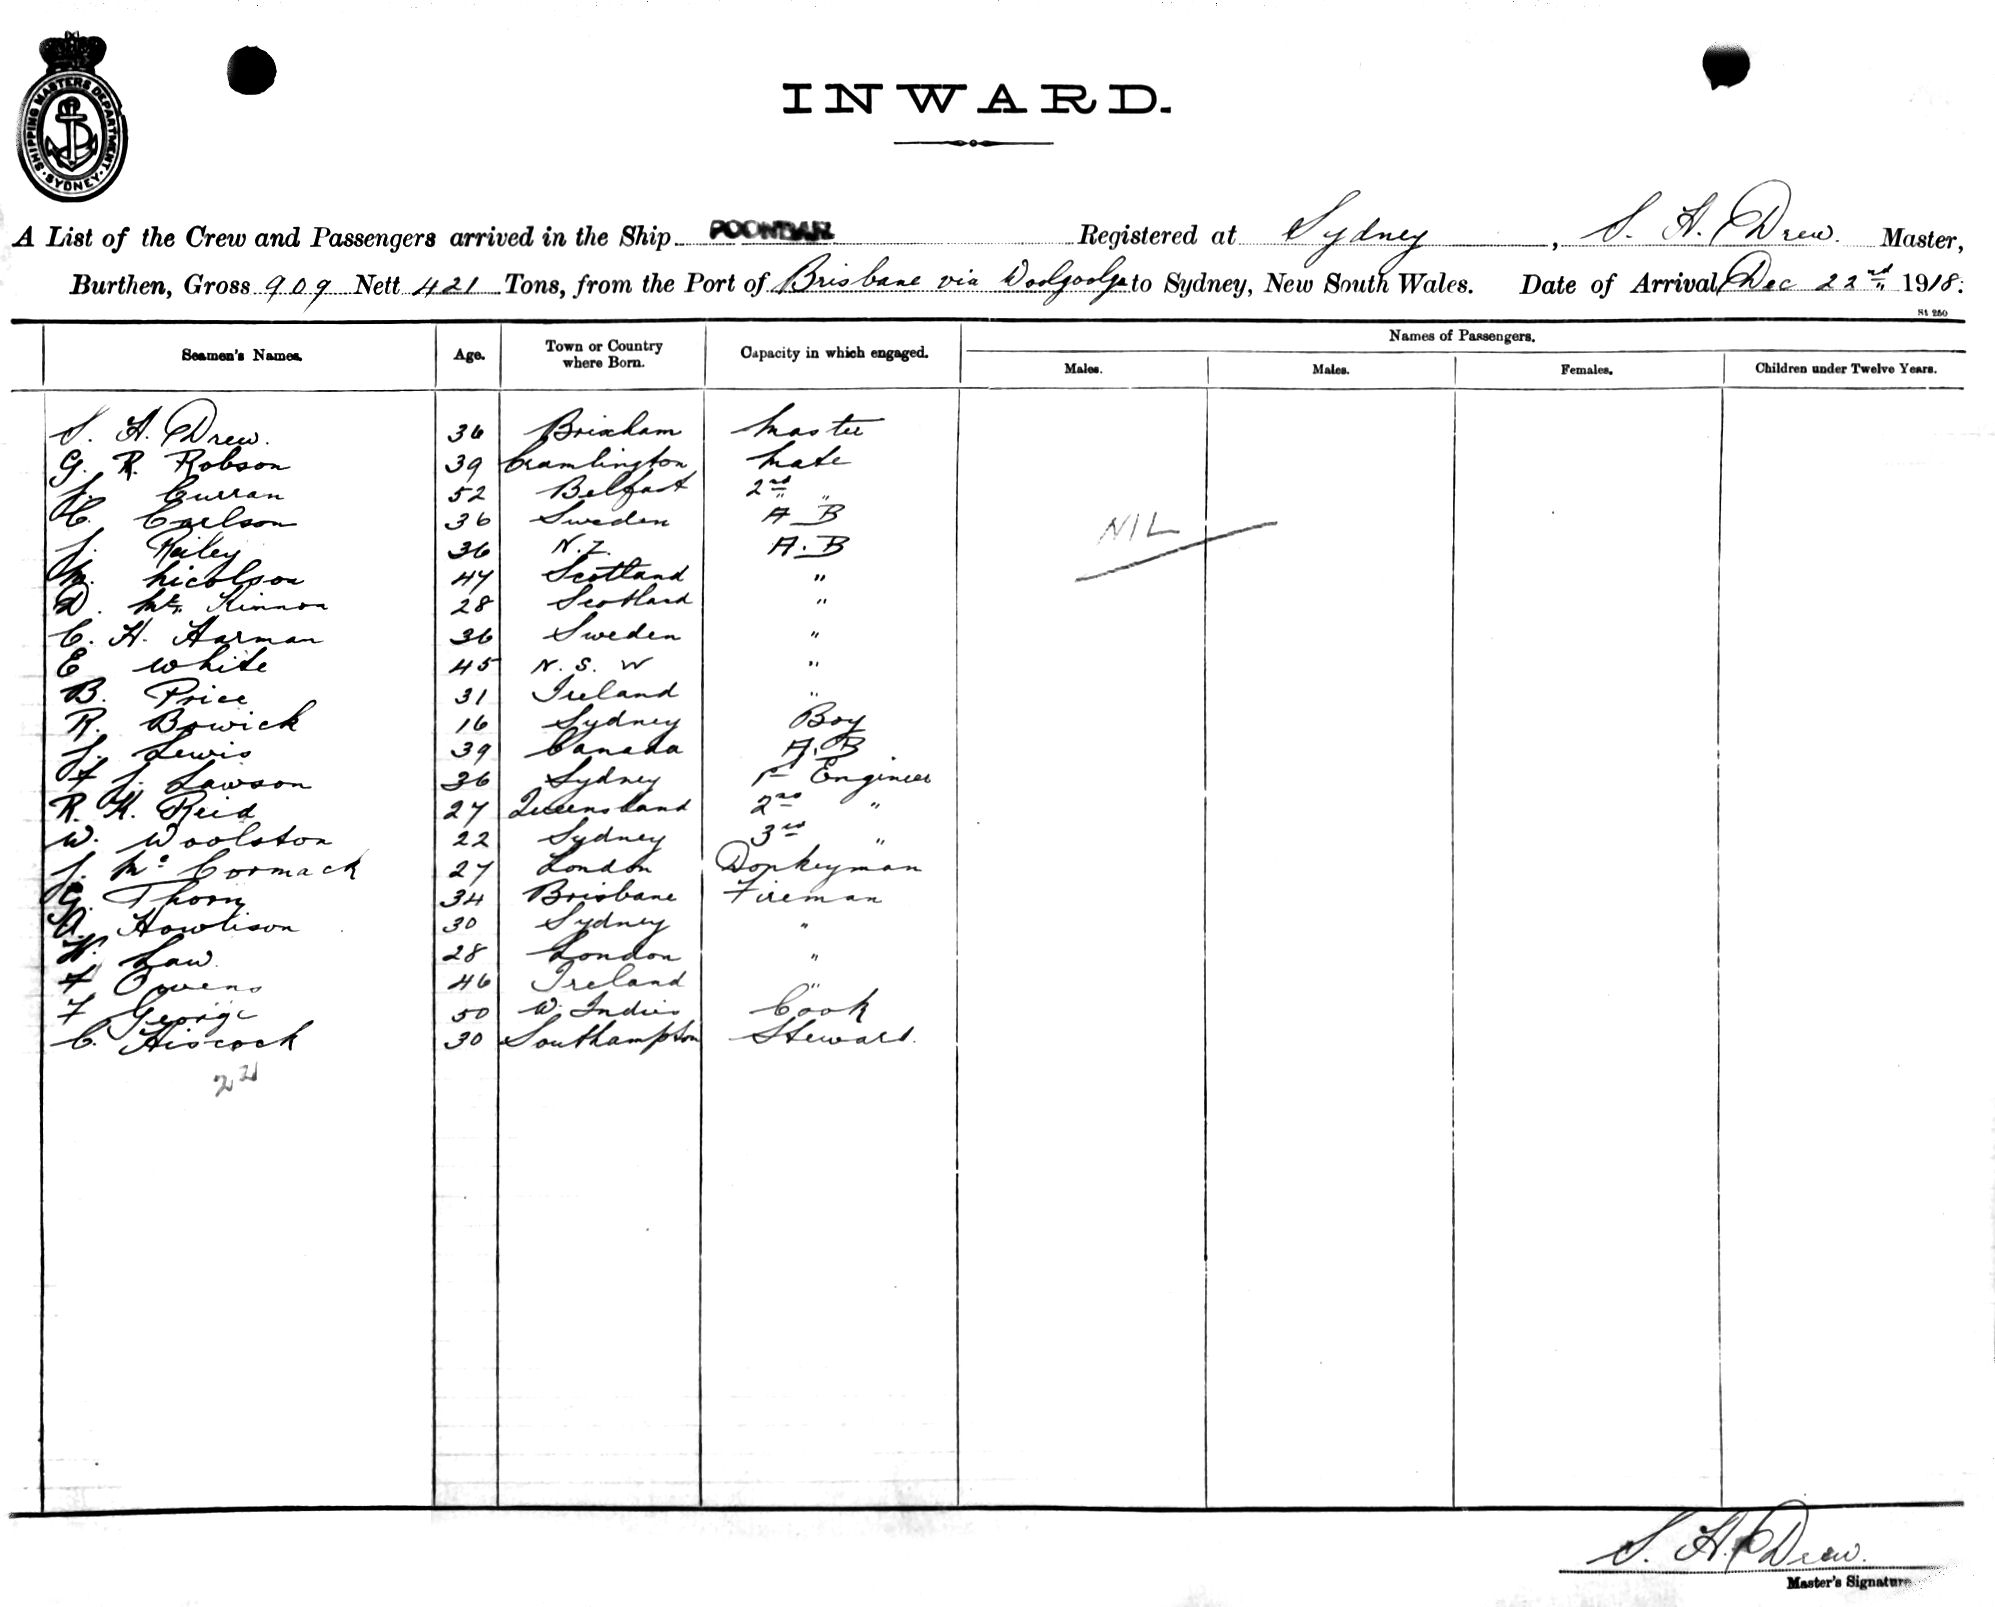 SHIPPING MASTERS DEPARTMENT · SYDNEY ·
INWARD.
A List of the Crew and Passengers arrived in the Ship POONBAR Registered at Sydney, S. H. Drew. Master,
Burthen, Gross 909 Nett 421 Tons, from the Port of Brisbane via Woolgoolga to Sydney, New South Wales. Date of Arrival, Dec 22nd 1918.
St 250
Seamen's Names. Age. Town or Country where Born. Capacity in which engaged. Names of Passengers.
Males. Males. Females. Children under Twelve Years.
S. H. Drew. 36 Brixham Master
G. R. Robson 39 Cramlington Mate
J. Curran 52 Belfast 2nd "
C. Carlson 36 Sweden A B
J. Railey 36 N.Z. A.B
M. Nicolson 47 Scotland "
D. Mc Kinnon 28 Scotland "
C. H. Harman 36 Sweden "
E White 45 N. S. W "
B. Price 31 Ireland "
R. Bowick 16 Sydney Boy
J. Lewis 39 Canada A.B
F J. Lawson 36 Sydney 1st Engineer
R. H. Reid 27 Queensland 2nd "
W. Woolston 22 Sydney 3rd "
J. Mc Cormack 27 London Donkeyman
G. Thorn 34 Brisbane Fireman
A. Howlison 30 Sydney "
H. Law 28 London "
F Owens 46 Ireland "
F George 50 W. Indies Cook
C. Hiscock 30 Southampton Steward.
NIL
22
S. H. Drew.
Master's Signature